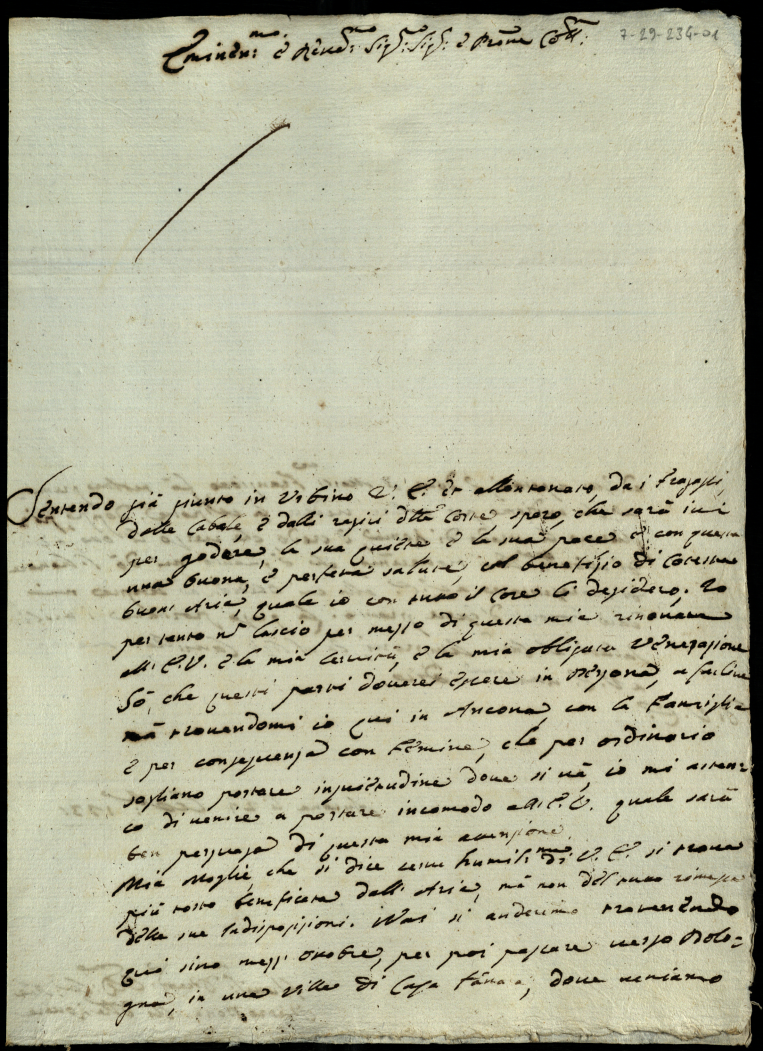 Eminen:mo e Rev:mo Sig:r Sig:r e Prone Coll:
7-29-234-01
Sentendo già giunto in Urbino V: E: et allontanato, da i
dalle Cabale, e dalli Corte, spero, che sarà ivi
per godere, la sua quiete e la sua pace e con questa
una buona, e perfetta salute, col benefizio di Cotesta
buon Aria, quale io con tutto il Core li desidero. Io
per tanto nō lascio per mezzo di questa mia rinovare
all' E.V. e la mia servitù, e la mia obligata Venerazione
Sò, che questi parti doverei essere in Persona, a farline
mà trovandomi io qui in Ancona, con la Famiglia
e per conseguenza con Femine, che per ordinario
sogliano portare inquietudine dove si và, io mi asten:
co di venire a portare incomodo all' E.V. quale sarà
ben persuasa di questa mia attenzione.
Mia Moglie, che si dice serva humiliss:ma di V. E. si trova
più tosto beneficata dall' Aria, mà non del tutto rimessa
delle sue Indisposizioni. Noi si anderemo trovendo
qui sino mezz' ottobre, per poi passare verso Bolo=
gna, in una Villa di Casa dove veniamo